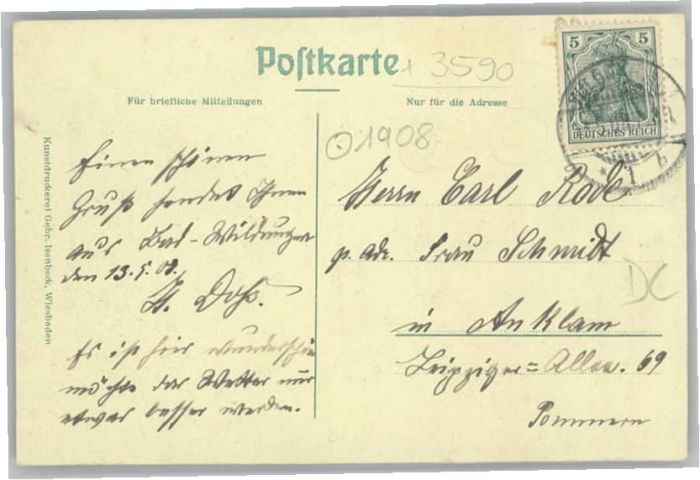 Postkarte
+ 3590
Für briefliche Mitteilungen
Nur für die Adresse
5 5
DEUTSCHES REICH
1908
Kunstdruckerei Gebr. Isenbeck, Wiesbaden
Einen schönen
Gruß sendet Ihnen
aus Bad-Wildungen
den 13.5.08.
Es ist hier wunderschön
möchte das Wetter nur
etwas besser werden.
Herrn Carl Rode
p. adr. Frau Schmidt
in Anklam
Leipziger=Allee. 69
Pommern
DC